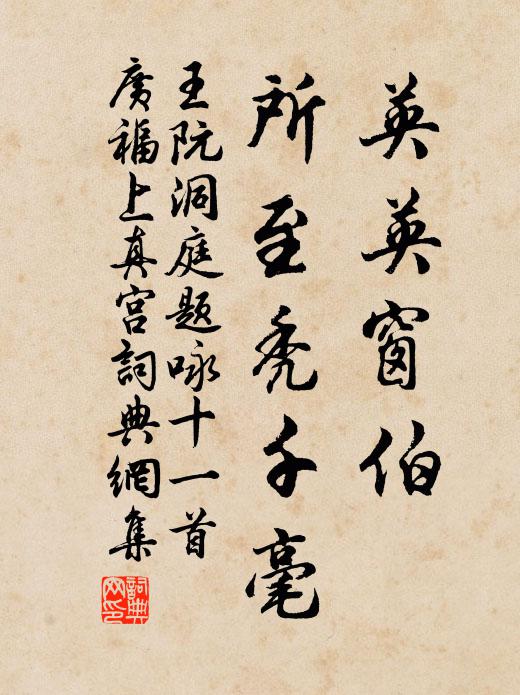 英英窗伯
所至秃千毫
王阮洞庭題咏十一首
廣福上真宫詞典網集
詞典
网印